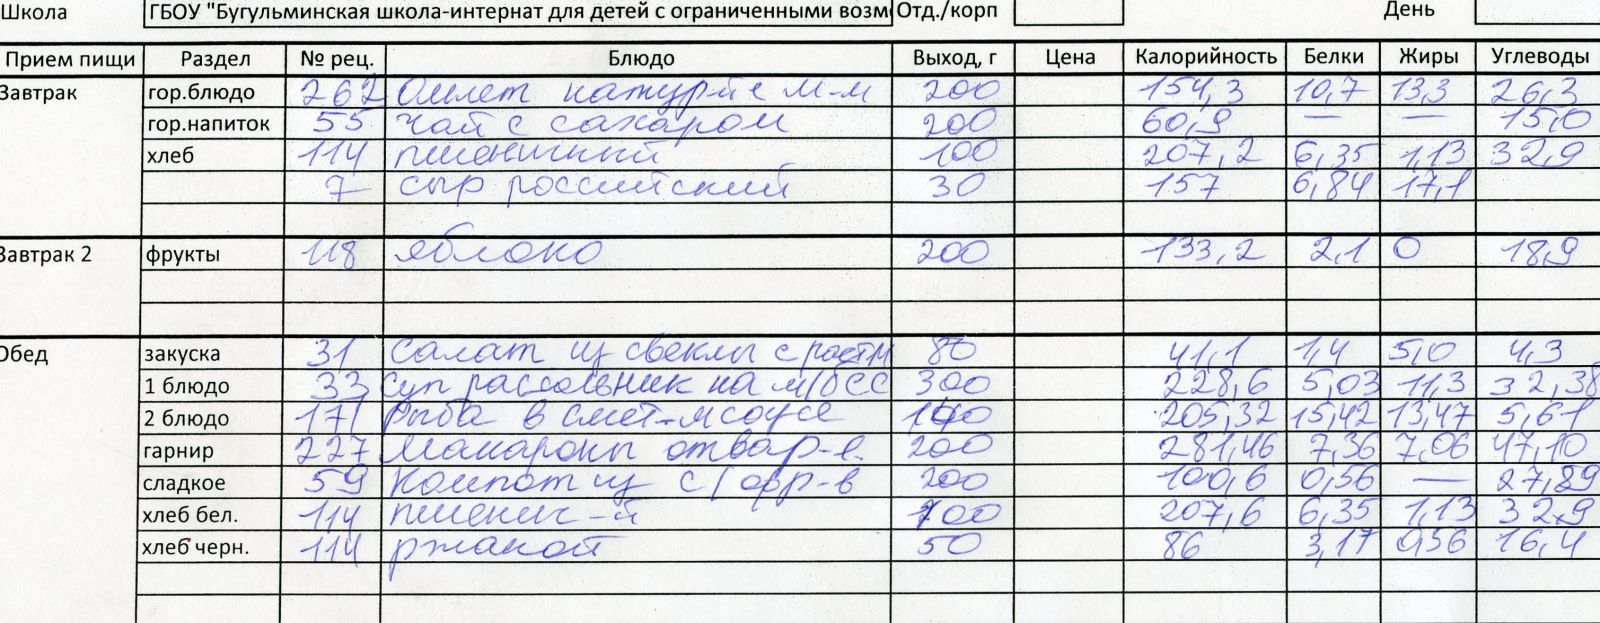 Школа ГБОУ "Бугульминская школа-интернат для детей с ограниченными возм Отд./корп День
Прием пищи Раздел № рец. Блюдо Выход, г Цена Калорийность Белки Жиры Углеводы
Завтрак гор.блюдо 262 Омлет натур-й с м-м 200 154,3 10,7 13,3 26,3
гор.напиток 55 чай с сахаром 200 60,9 — — 15,0
хлеб 114 пшеничный 100 207,2 6,35 1,13 32,9
7 сыр российский 30 157 6,84 17,1
Завтрак 2 фрукты 118 яблоко 200 133,2 2,1 0 18,9
Обед закуска 31 Салат из свеклы с раст м 80 41,1 1,4 5,0 4,3
1 блюдо 33 суп рассольник на м/б СС 300 228,6 5,03 11,3 32,38
2 блюдо 171 Рыба в смет-м соусе 100 205,32 15,42 13,47 5,61
гарнир 227 Макароны отвар-е 200 281,46 7,36 7,06 47,10
сладкое 59 Компот из с/фр-в 200 100,6 0,56 — 27,89
хлеб бел. 114 пшенич-й 100 207,6 6,35 1,13 32,9
хлеб черн. 114 ржаной 50 86 3,17 0,56 16,4